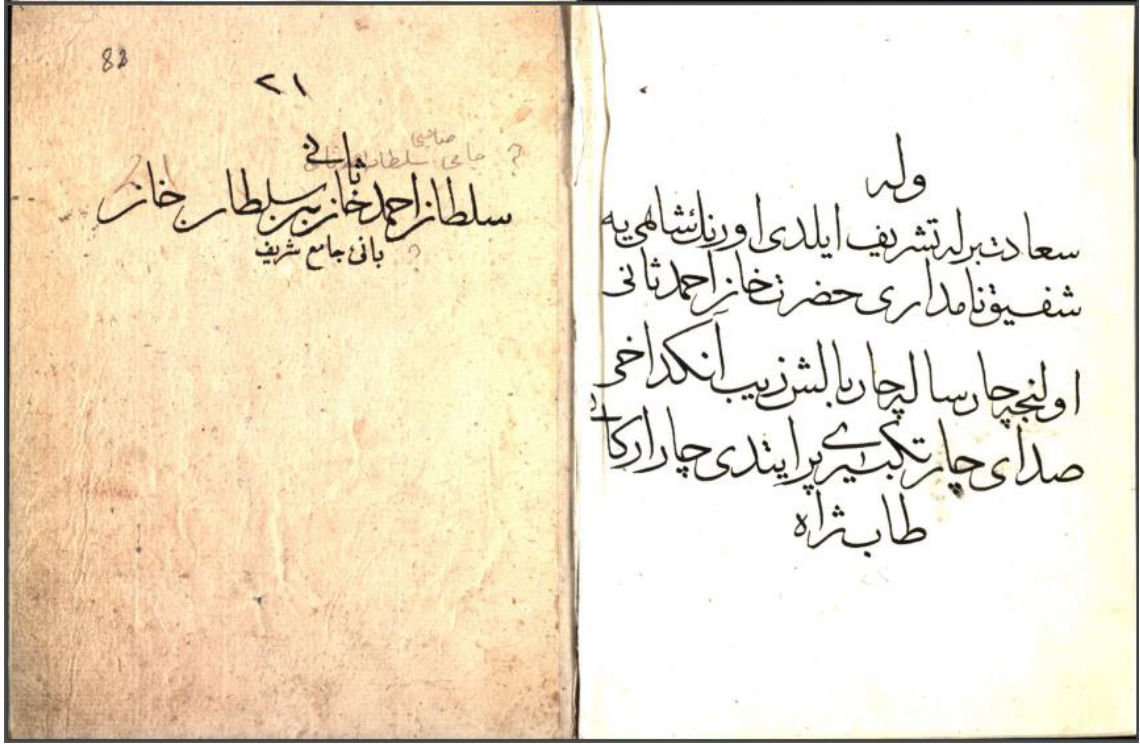 وله
سعادت برله تشریف ایلدی اورنك شاهی یه
شفیق نامداری حضرت خان احمد ثانی
اولنجه چار ساله چار بالش زیب آنكداخی
صدای چار تكبیری پر ایتدی چار اركانی
طاب ثراه
82
٢١
صاحبی
ثانی
سلطان احمد خان بن سلطان خان
بانی جامع شریف